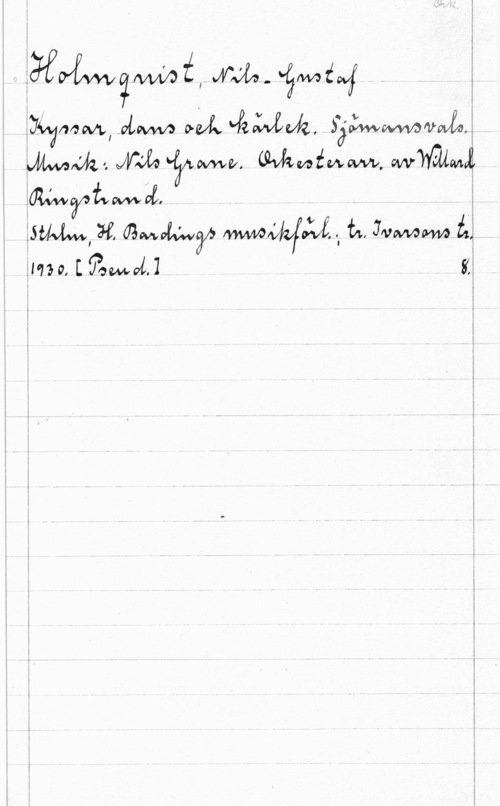 Ork.
Holmqvist, Nils-Gustaf
Kyssar, dans och kärlek. Sjömansvals.
Musik: Nils Grane. Orkesterarr. av Willard
Ringstrand.
Sthlm, H. Bardings musikförl.; tr. Ivarsons tr.
1930. [Pseud.] 8.